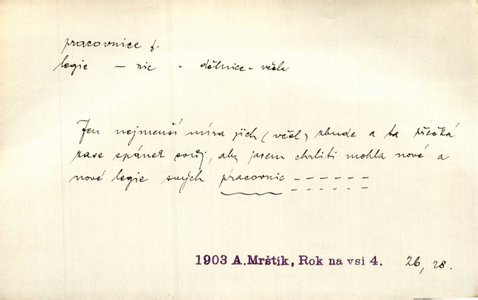 pracovnice f.
legie – nic - dělnice - včela
Jen nejmenší míra jich (včel) zbude a ta přečká
zase spánek svůj, aby jarem chrliti mohla nové a
nové legie svých pracovnic – – – – – –
1903 A. Mrštík, Rok na vsi 4. 26, 28.